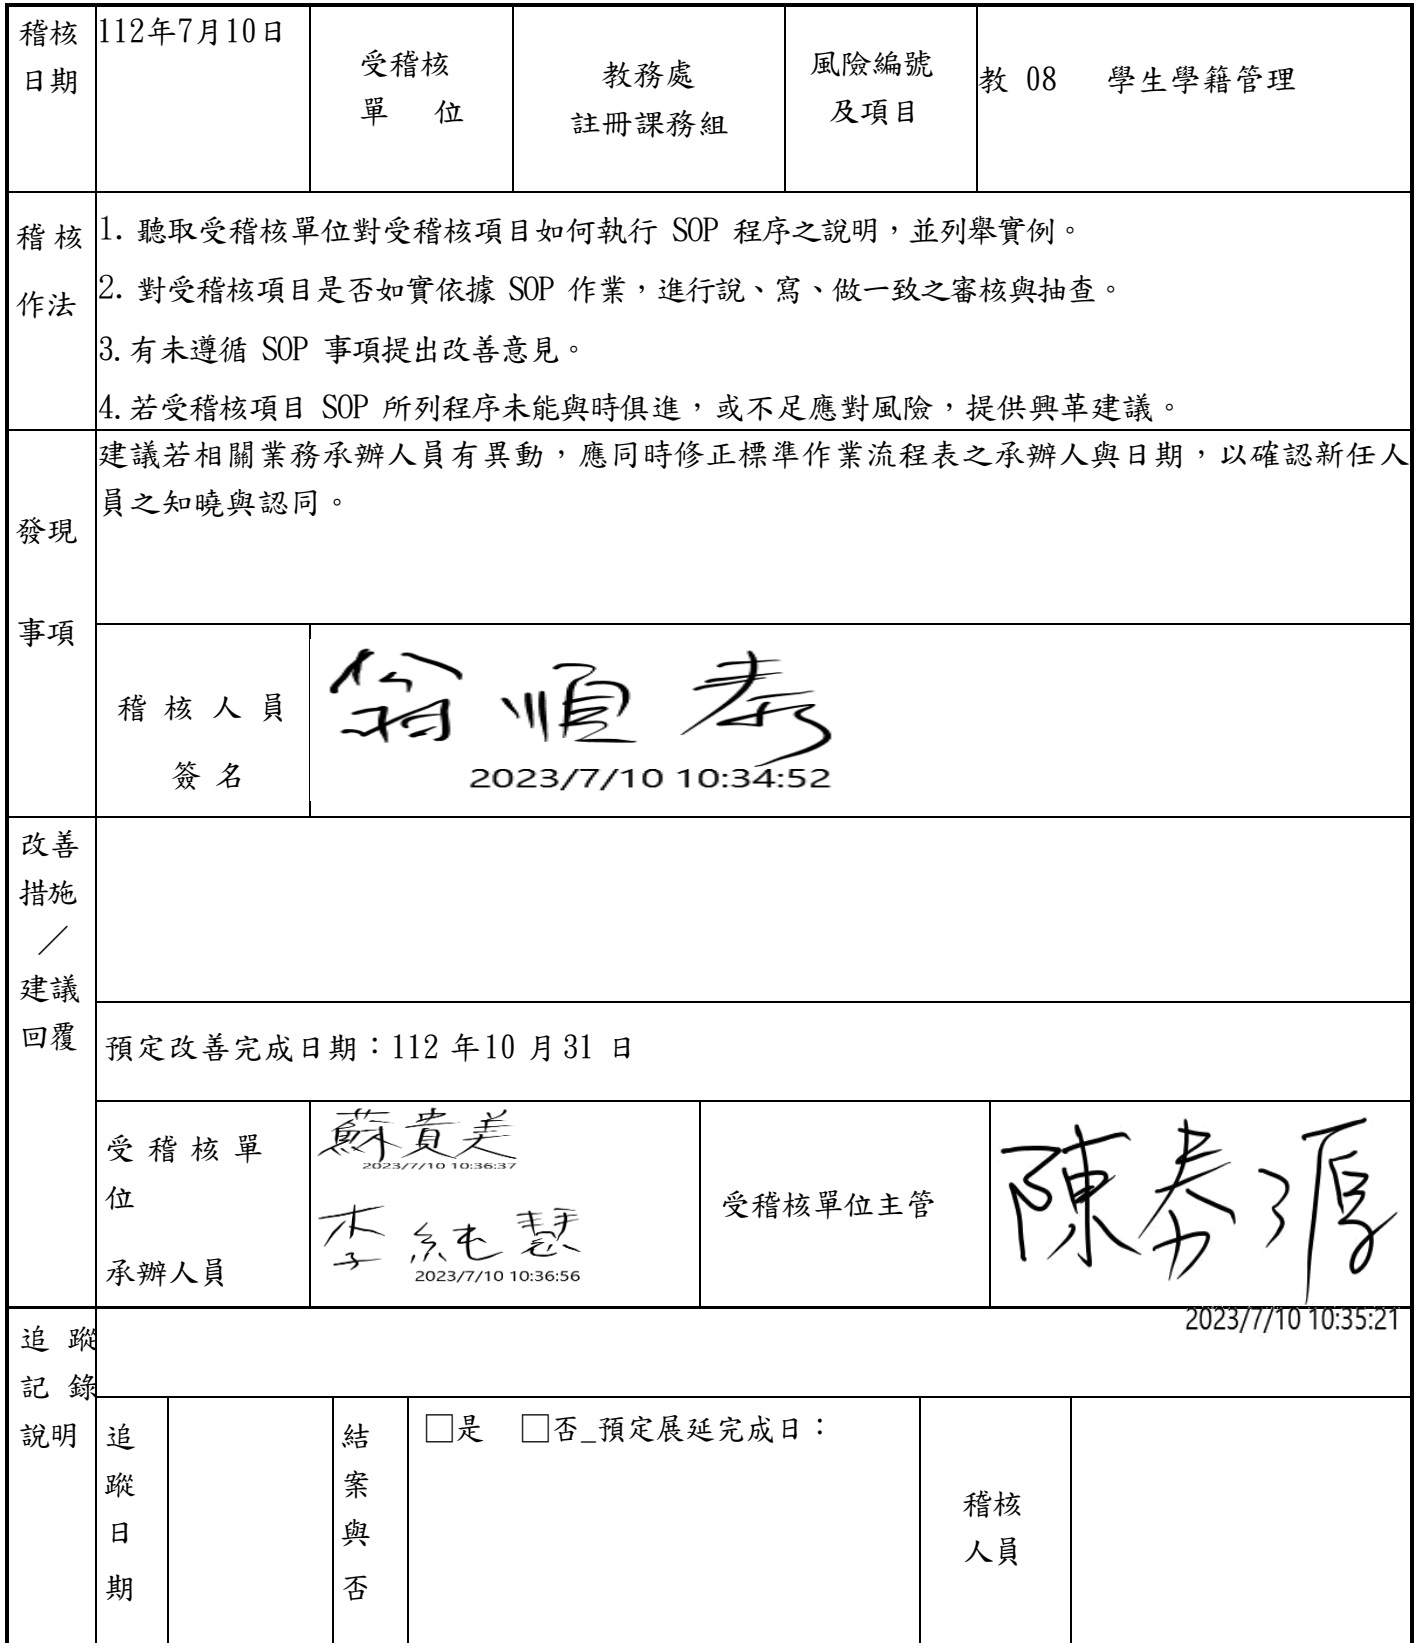 稽核
日期
112年7月10日
受稽核
單 位
教務處
註冊課務組
風險編號
及項目
教 08 學生學籍管理
稽核
作法
1. 聽取受稽核單位對受稽核項目如何執行 SOP 程序之說明，並列舉實例。
2. 對受稽核項目是否如實依據 SOP 作業，進行說、寫、做一致之審核與抽查。
3. 有未遵循 SOP 事項提出改善意見。
4. 若受稽核項目 SOP 所列程序未能與時俱進，或不足應對風險，提供興革建議。
發現
事項
建議若相關業務承辦人員有異動，應同時修正標準作業流程表之承辦人與日期，以確認新任人
員之知曉與認同。
稽核人員
簽名
翁順泰
2023/7/10 10:34:52
改善
措施
／
建議
回覆
預定改善完成日期：112 年10 月31 日
受稽核單
位
承辦人員
蘇貴美
2023/7/10 10:36:37
李純慧
2023/7/10 10:36:56
受稽核單位主管
陳
2023/7/10 10:35:21
追 蹤
記 錄
說明
追
蹤
日
期
結
案
與
否
□是 □否_預定展延完成日：
稽核
人員